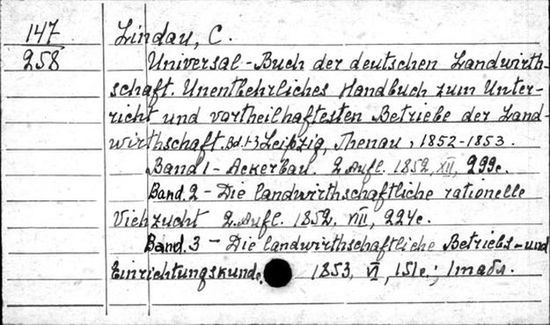 147
258
Lindau, C.
Universal-Buch der deutschen Landwirth-
schaft. Unentbehrliches Handbuch zum Unter-
richt und vortheilhaftesten Betriebe der Land-
wirthschaft. Bd. 1-3 Leipzig, Thenau, 1852-1853.
Band 1 - Ackerbau. 2 Aufl. 1852, XII, 299c.
Band. 2 - Die landwirthschaftliche rationelle
Viehzucht 2. Aufl. 1852, VIII, 224c.
Band. 3 - Die landwirthschaftliche Betriebs-und
Einrichtungskunde. 1853, VI, 151c.; 1табл.